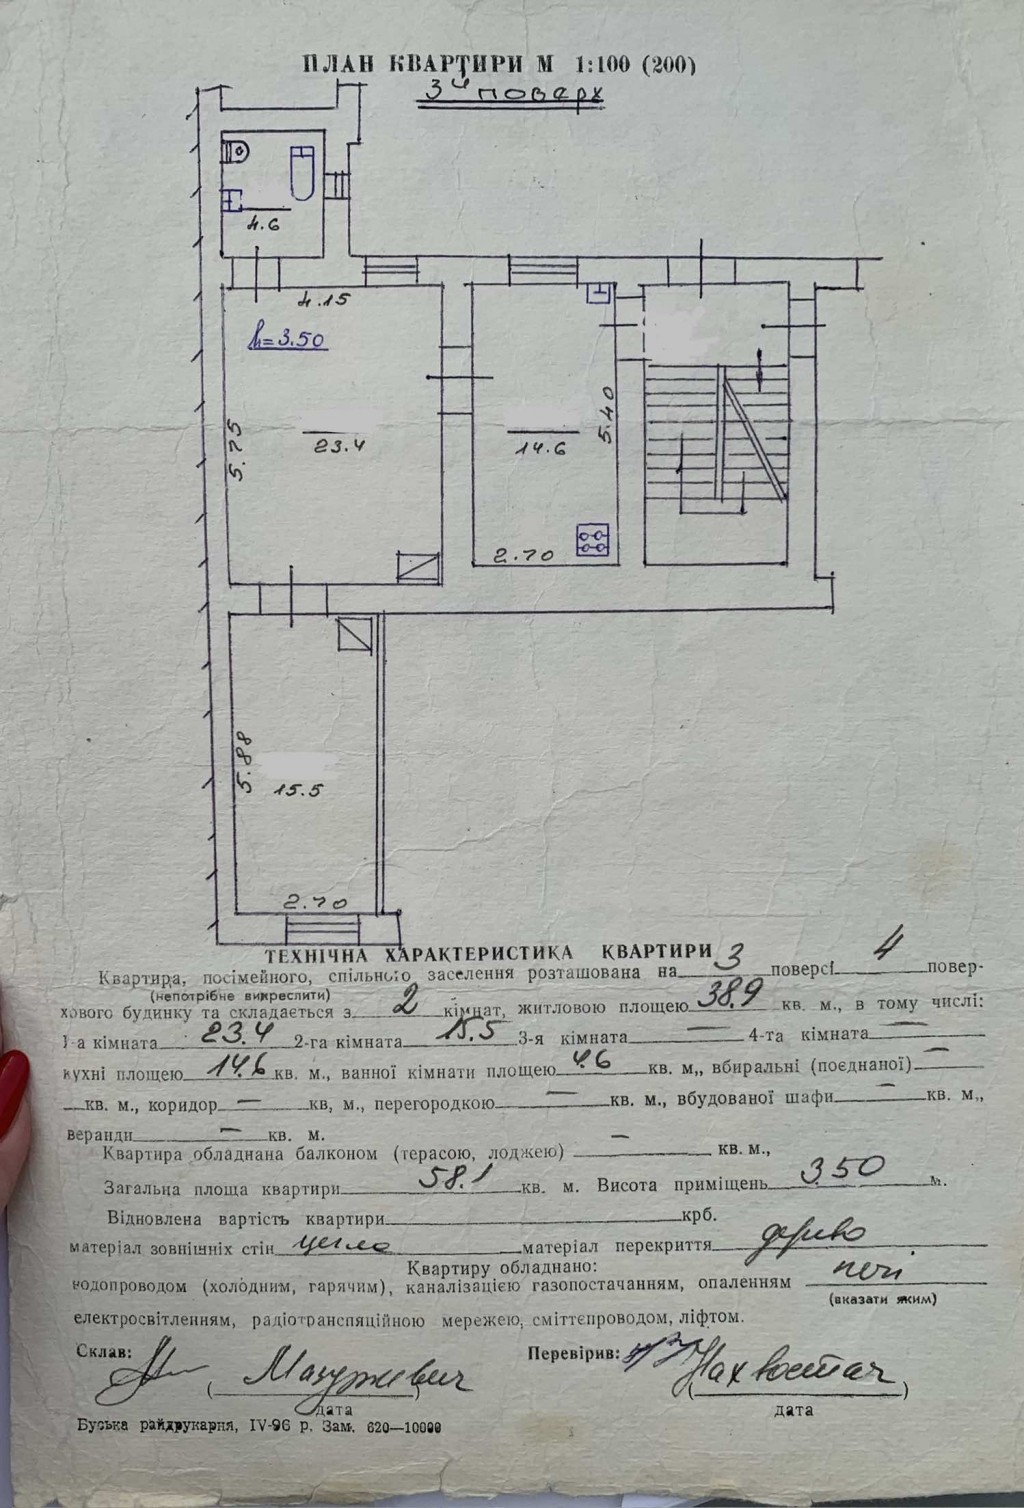 ПЛАН КВАРТИРИ М 1:100 (200)
3й поверх
4.6
4.15
h=3.50
5.75
23.4
14.6
5.40
2.70
5.88
15.5
2.70
ТЕХНІЧНА ХАРАКТЕРИСТИКА КВАРТИРИ
Квартира, посімейного, спільного заселення розташована на 3 поверсі 4 повер-
(непотрібне викреслити)
хового будинку та складається з 2 кімнат, житловою площею 38.9 кв. м., в тому числі:
1-а кімната 23.4 2-га кімната 15.5 3-я кімната — 4-та кімната —
кухні площею 14.6 кв. м., ванної кімнати площею 4.6 кв. м,, вбиральні (поєднаної) —
кв. м., коридор — кв, м., перегородкою — кв. м., вбудованої шафи — кв. м,,
веранди — кв. м.
Квартира обладнана балконом (терасою, лоджею) — кв. м.,
Загальна площа квартири 58.1 кв. м. Висота приміщень 3.50 м.
Відновлена вартість квартири крб.
матеріал зовнішніх стін цегла матеріал перекриття дерево
Квартиру обладнано:
водопроводом (холодним, гарячим), каналізацією газопостачанням, опаленням печі
(вказати яким)
електросвітленням, радіотранспяційною мережею, сміттєпроводом, ліфтом.
Склав: (Мазуркевич) Перевірив: (Нахвостач)
дата дата
Буська райдрукарня, IV-96 р. Зам. 620—10000